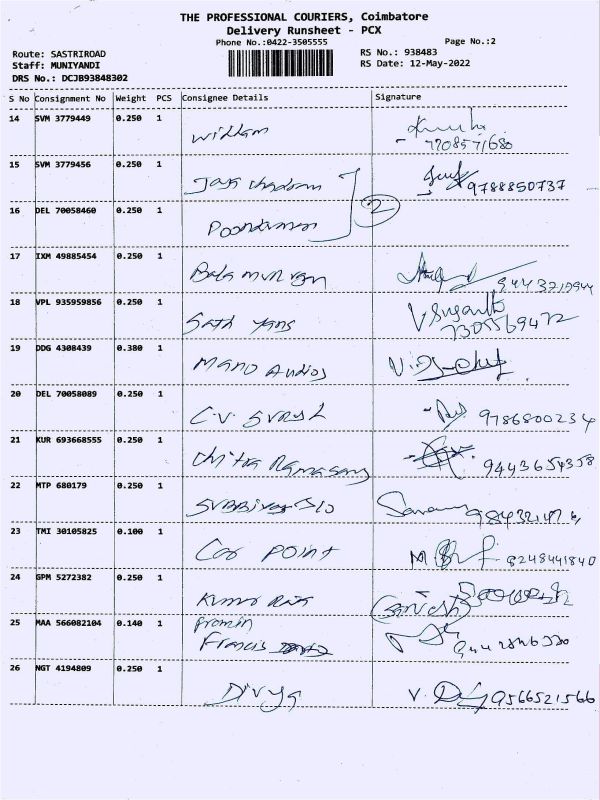 THE PROFESSIONAL COURIERS, Coimbatore
Delivery Runsheet - PCX
Phone No.:0422-3505555 Page No.:2
Route: SASTRIROAD RS No.: 938483
Staff: MUNIYANDI RS Date: 12-May-2022
DRS No.: DCJB93848302
S No Consignment No Weight PCS Consignee Details Signature
14 SVM 3779449 0.250 1 William
7708571680
15 SVM 3779456 0.250 1 9788850737
16 DEL 70058460 0.250 1 2
17 IXM 49885454 0.250 1 Bala murugan
18 VPL 935959856 0.250 1 V Susanth
7305569472
19 DDG 4308439 0.380 1 Mano Audios
20 DEL 70058089 0.250 1 C.V. Suresh 9786800234
21 KUR 693668555 0.250 1 Chitra Ramasamy 9443654358
22 MTP 680179 0.250 1
23 TMI 30105825 0.100 1 Coo Point 8248441840
24 GPM 5272382 0.250 1 Ganesh
25 MAA 566082104 0.140 1 Francis
26 NGT 4194809 0.250 1 Divya V. 9566521566